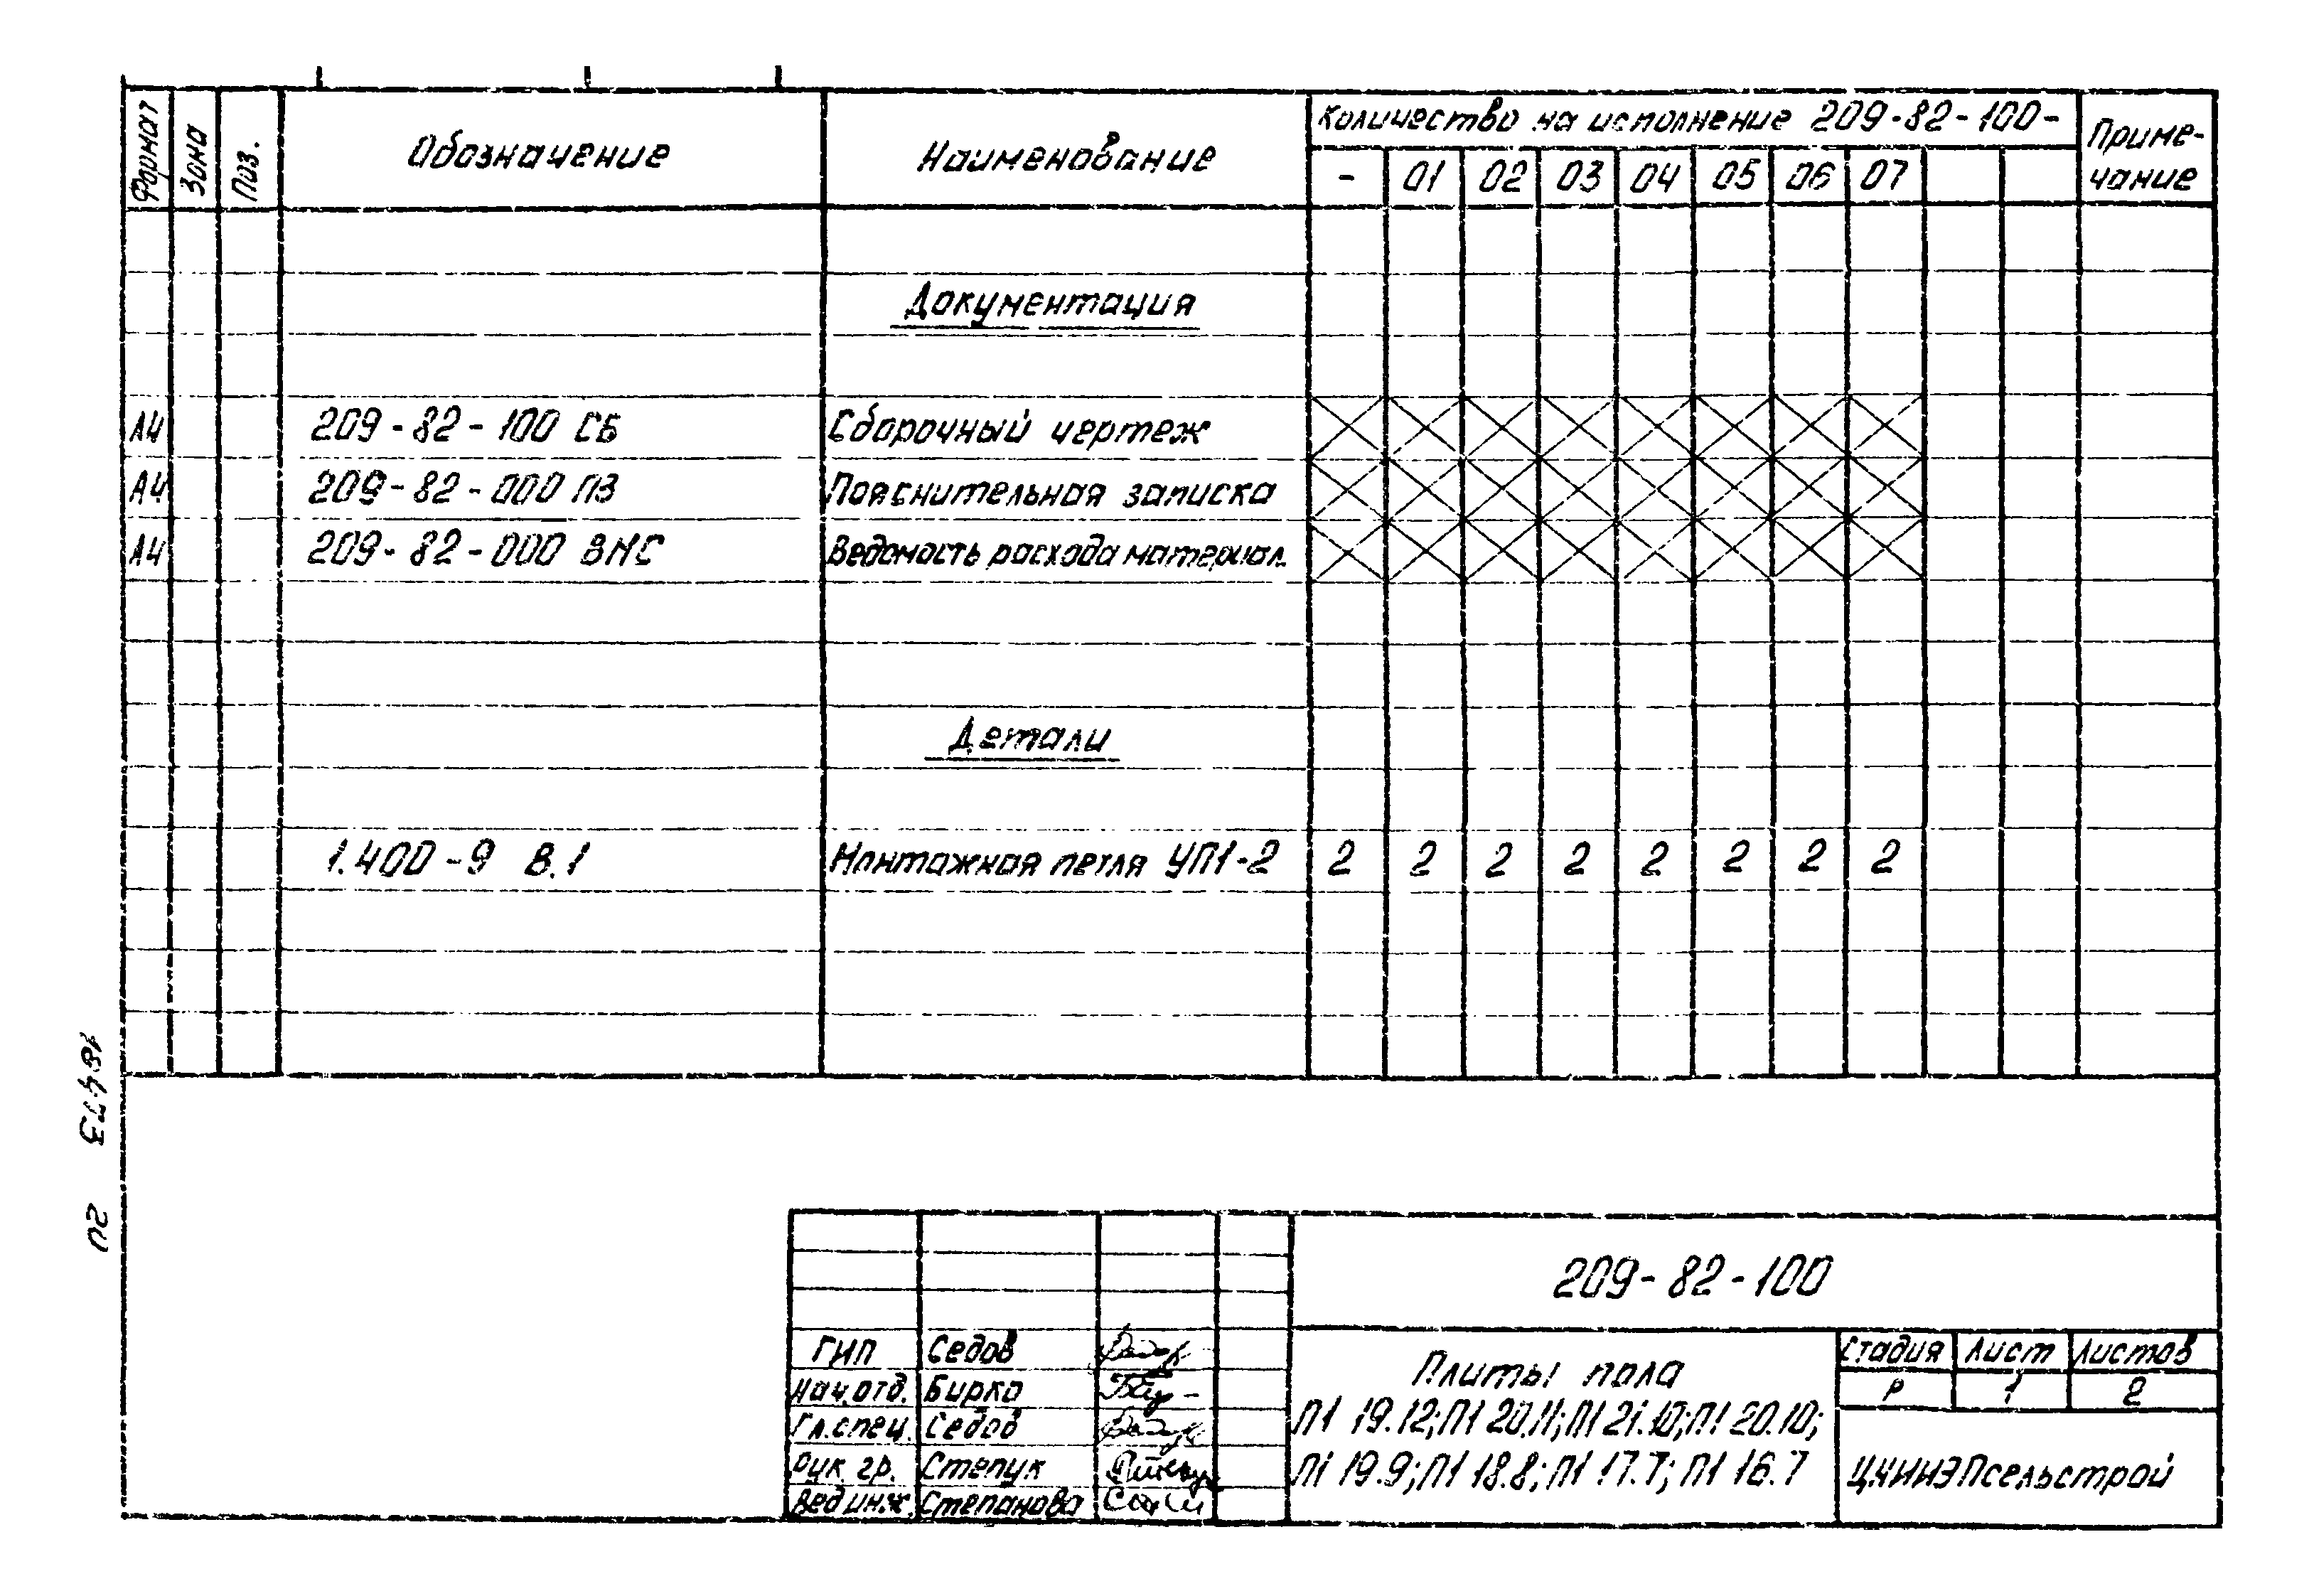 Формат Зона Поз. Обозначение Наименование Количество на исполнение 209-82-100- Приме-
чание
- 01 02 03 04 05 06 07
Документация
А4 209-82-100 СБ Сборочный чертеж
А4 209-82-000 ПЗ Пояснительная записка
А4 209-82-000 ВМС Ведомость расхода материал.
Детали
1.400-9 В.1 Монтажная петля УП1-2 2 2 2 2 2 2 2 2
18473 20
209-82-100
ГИП Седов
Нач.отд. Бирко
Гл.спец. Седов
Рук. гр. Степук
Вед.инж. Степанова
Плиты пола
П1 19.12; П1 20.11; П1 21.10; П1 20.10;
П1 19.9; П1 18.8; П1 17.7; П1 16.7
Стадия Лист Листов
Р 1 2
ЦНИИЭПсельстрой